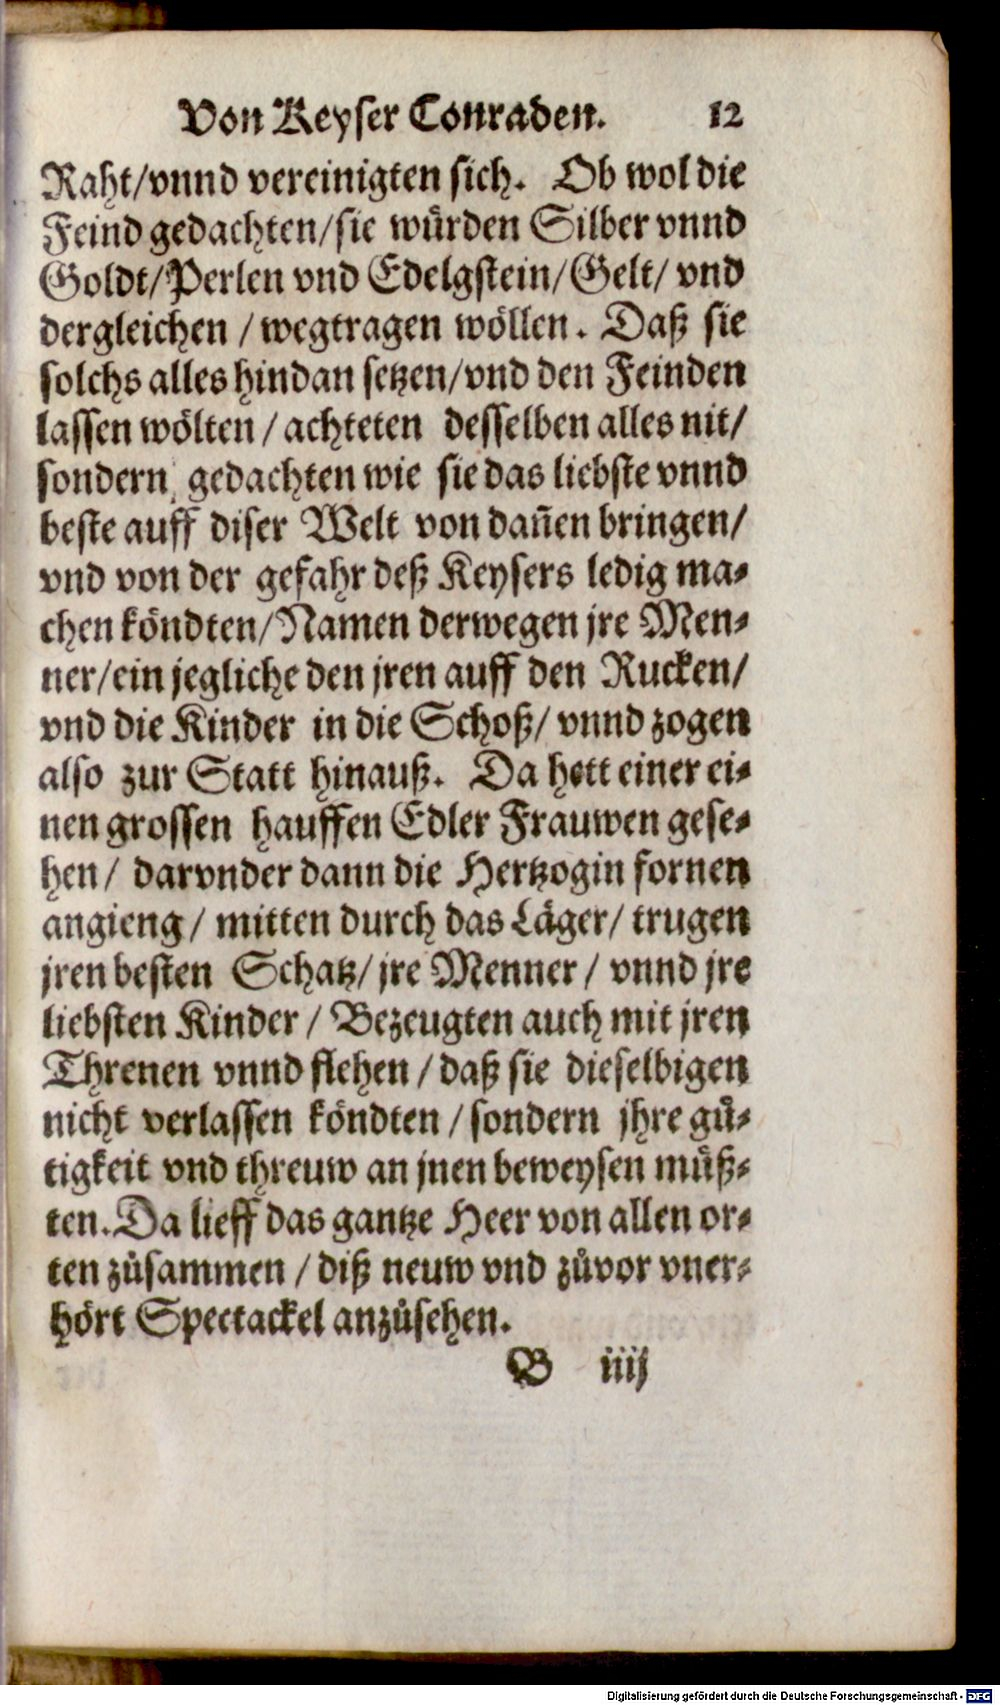 Von Keyser Conraden. 12
Raht/vnnd vereinigten sich. Ob wol die
Feind gedachten/sie würden Silber vnnd
Goldt/Perlen vnd Edelgstein/Gelt/ vnd
dergleichen / wegtragen wöllen. Daß sie
solchs alles hindan setzen/vnd den Feinden
lassen wölten / achteten desselben alles nit/
sondern gedachten wie sie das liebste vnnd
beste auff diser Welt von dañen bringen/
vnd von der gefahr deß Keysers ledig ma-
chen köndten/Namen derwegen jre Men-
ner/ein jegliche den jren auff den Rucken/
vnd die Kinder in die Schoß/ vnnd zogen
also zur Statt hinauß. Da hett einer ei-
nen grossen hauffen Edler Frauwen gese-
hen/ darvnder dann die Hertzogin fornen
angieng/ mitten durch das Läger/ trugen
jren besten Schatz/ jre Menner / vnnd jre
liebsten Kinder / Bezeugten auch mit jren
Threnen vnnd flehen / daß sie dieselbigen
nicht verlassen köndten / sondern jhre gü-
tigkeit vnd threuw an jnen beweysen müß-
ten. Da lieff das gantze Heer von allen or-
ten zůsammen / diß neuw vnd zůvor vner-
hört Spectackel anzůsehen.
B iiij
Digitalisierung gefördert durch die Deutsche Forschungsgemeinschaft - DFG